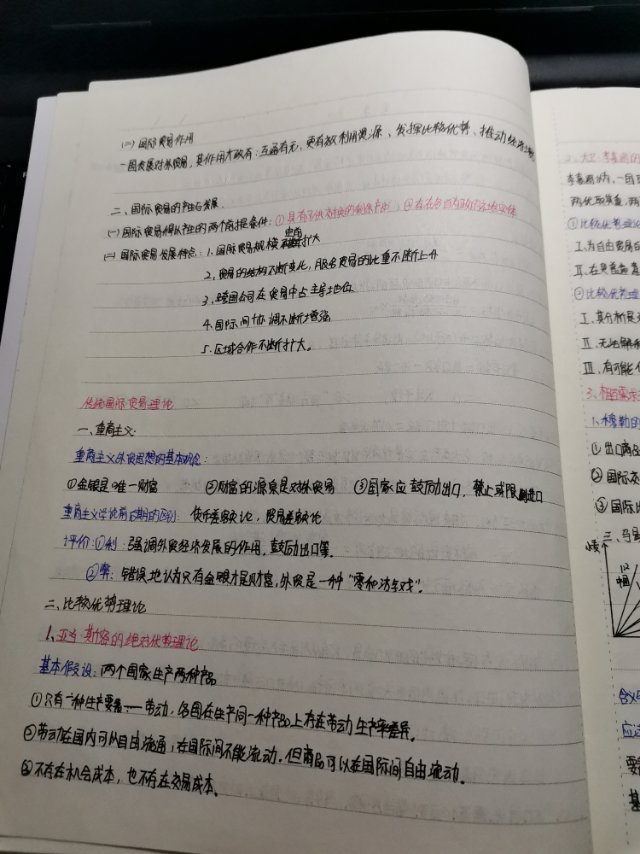 (二)国际贸易作用
一国发展对外贸易,其作用大致有:互通有无、更有效利用资源、发挥比较优势、推动经济
二、国际贸易的产生与发展.
(一)国际贸易得以产生的两个前提条件:①具有可供交换的剩余产品;②存在各自有政府的社会实体
(二)国际贸易发展特点:1.国际贸易规模空前扩大
2.贸易的结构不断变化,服务贸易的比重不断上升
3.跨国公司在贸易中占主导地位
4.国际间协调不断增强
5.区域合作不断扩大。
传统国际贸易理论
一、重商主义:
重商主义外贸思想的基本观点:
①金银是唯一财富 ②财富的源泉是对外贸易 ③国家应鼓励出口,禁止或限制进口
重商主义学说前后期的区别:货币差额论,贸易差额论
评价:①利:强调外贸经济发展的作用,鼓励出口等.
②弊:错误地认为只有金银才是财富,外贸是一种"零和游戏".
二、比较优势理论
1、亚当·斯密的绝对优势理论
基本假设:两个国家生产两种产品
①只有一种生产要素——劳动,各国在生产同一种产品上存在劳动生产率差异.
②劳动在国内可以自由流通,在国际间不能流动.但商品可以在国际间自由流动.
③不存在机会成本,也不存在交易成本.
2、大卫·李嘉图的
①比较优势
Ⅰ、
Ⅱ、
②比较优势理
Ⅰ、其分析是
Ⅱ、无法解释
Ⅲ、有可能
3、相互需求
1、穆勒的
①出口商品
②国际
③国际
三、
小麦
12